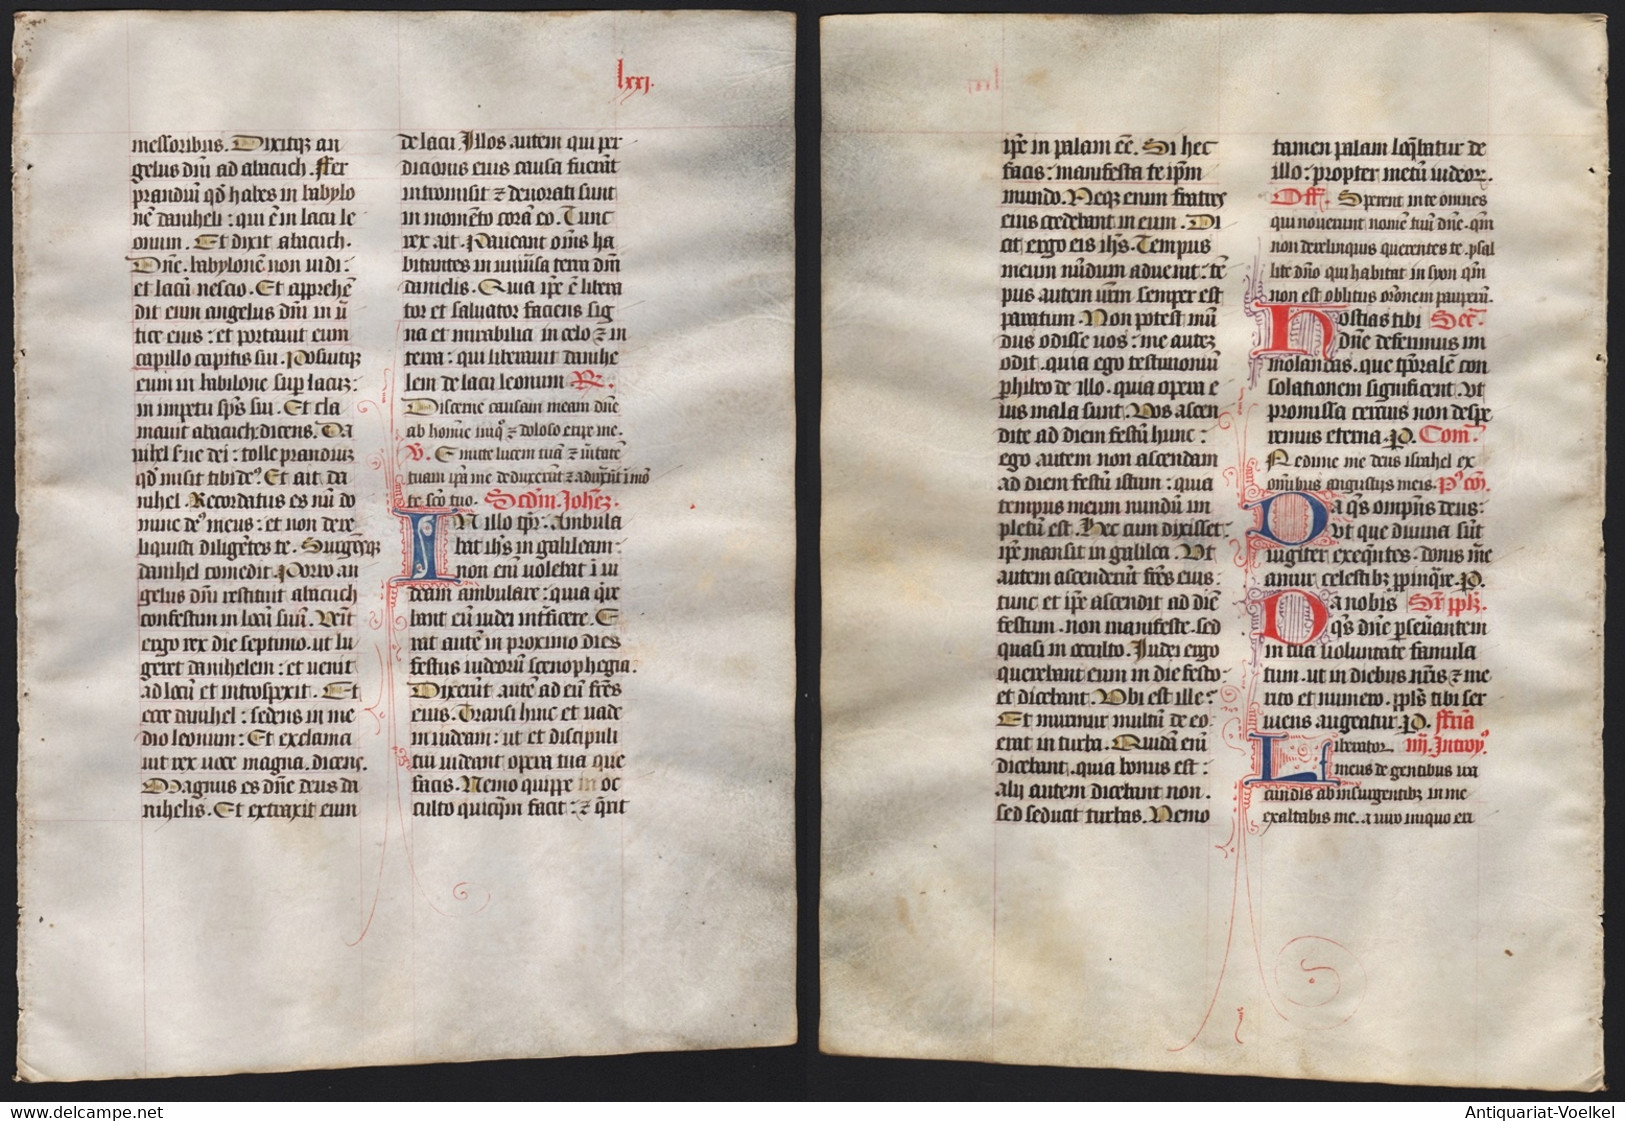 lxxi.
messoribus. Dixitqz an
gelus dñi ad abacuch. ffer
prandiũ qđ habes in babylo
nẽ daniheli : qui ẽ in lacu le
onum. Et dixit abacuch.
Dñe. babylonẽ non uidi :
et lacũ nescio. Et apprehẽ
dit eum angelus dñi in ũ
tice eius : et portauit eum
capillo capitis sui. Posuitqz
eum in babilone sup̱ lacuz :
in impetu sp̃s sui. Et cla
mauit abacuch : dicens. Da
nihel s'ue dei : tolle prandiuz
qđ misit tibi de⁹. Et ait da
nihel. Recordatus es mĩ do
mine de⁹ meus : et non dere
liquisti diligẽtes te. Surgẽsqz
danihel comedit. Porro an
gelus dñi restituit abacuch
confestim in locũ suũ. Veñt
ergo rex die septimo. ut lu
geret danihelem : et uenit
ad locũ et introspexit. Et
ecce danihel : sedens in me
dio leonum : Et exclama
uit rex uoce magna. dicens.
Magnus es dñe deus da
nihelis. Et extraxit eum
de lacu. Illos autem qui per
dicionis eius causa fuerãt
intromisit ⁊ deuorati sunt
in momẽto corã eo. Tunc
rex ait. Paueant om̃s ha
bitantes in uniũsa terra dm̃
danielis. Quia ip̃e ẽ libera
tor et saluator faciens sig
na et mirabilia in celo ⁊ in
terra : qui liberauit danihe
lem de lacu leonum R.
Discerne causam meam dñe
ab homĩe iniq° ⁊ doloso eripe me.
V. Emitte lucem tuã ⁊ ũitatẽ
tuam ip̃a me deduxerũt ⁊ aduxerũt ĩ mõ
tẽ sc̃m tuũ. Scđm. Johẽz.
IN illo tp̃r : Ambula
bat ih̃s in galileam :
non enĩ uolebat ĩ iu
deam ambulare : quia q̃re
bant eũ iudei int̃ficere. E
rat autẽ in proximo dies
festus iudeorũ scenophegia.
Dixerũt autẽ ad eũ fr̃es
eius. Transi hinc et uade
in iudeam : ut et discipuli
tui uideant opera tua que
facis. Nemo quippe in oc
culto quicq̃m facit : ⁊ q̃rit
ip̃e in palam eẽ. Si hec
facis : manifesta te ip̃m
mundo. Neqz enim fratres
eius credebant in eum. Di
cit ergo eis ih̃s. Tempus
meum nũdum aduenit : tẽ
pus autem ur̃m semper est
paratum. Non potest mũ
dus odisse uos : me autez
odit. quia ego testimoniũ
p̱hibeo de illo. quia opera e
ius mala sunt. Vos ascen
dite ad diem festũ hunc :
ego autem non ascendam
ad diem festũ istum : quia
tempus meum nundũ im
pletũ est. Hec cum dixisset :
ip̃e mansit in galilea. Vt
autem ascenderũt fr̃es eius :
tunc et ip̃e ascendit ad diẽ
festum. non manifeste. sed
quasi in occulto. Iudei ergo
querebant eum in die festo :
et dicebant. Vbi est ille ?
Et murmur multũ de eo.
erat in turba. Quidã enĩ
dicebant. quia bonus est :
alij autem dicebant non.
sed seducit turbas. Nemo
tamen palam loq̃batur de
illo : propter metũ iudeoꝝ.
Off. Sperent in te omnes
qui nouerunt nomẽ tuũ dñe. qm̃
non derelinquis querentes te. psal
lite dño qui habitat in syon qm̃
non est oblitus or̃onem pauperũ.
Hostias tibi Sec̃.
dñe deferimus im
molandas. que tp̱oralẽ con
solationem significent. Vt
promissa certius non despe
remus eterna. P. Com̃.
Redime me deus israhel ex
om̃ibus angustijs meis. P⁹ cõ.
Da q̃s omp̃ns deus :
vt que diuina sũt
iugiter exeq̃ntes : donis m̃e
amur celestibz p̱pinq̃re. P.
Da nobis Sr̃ pplz.
q̃s dñe p̱seũantem
in tua uoluntate famula
tum. ut in diebus nr̃is ⁊ me
rito et numero. ppl̃s tibi ser
uiens augeatur. P. ffria
Liberator iiij. Introy⁹.
meus de gentibus ira
cundis ab insurgentibz in me
exaltabis me. a uiro iniquo eri
Antiquariat-Voelkel
www.delcampe.net
Antiquariat-Voelkel